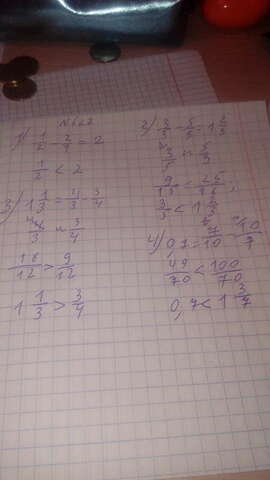 N622
1) 1/2 2/1 = 2
1/2 < 2
3) 1 1/3 = 4/3 3/4
4/3 и 3/4
16/12 > 9/12
1 1/3 > 3/4
2) 3/5 5/3 = 1 2/3
3/5 и 5/3
9/15 25/15
3/5 < 1 2/3
4) 0,7 = 7/10 10/7
49/70 < 100/70
0,7 < 1 3/7